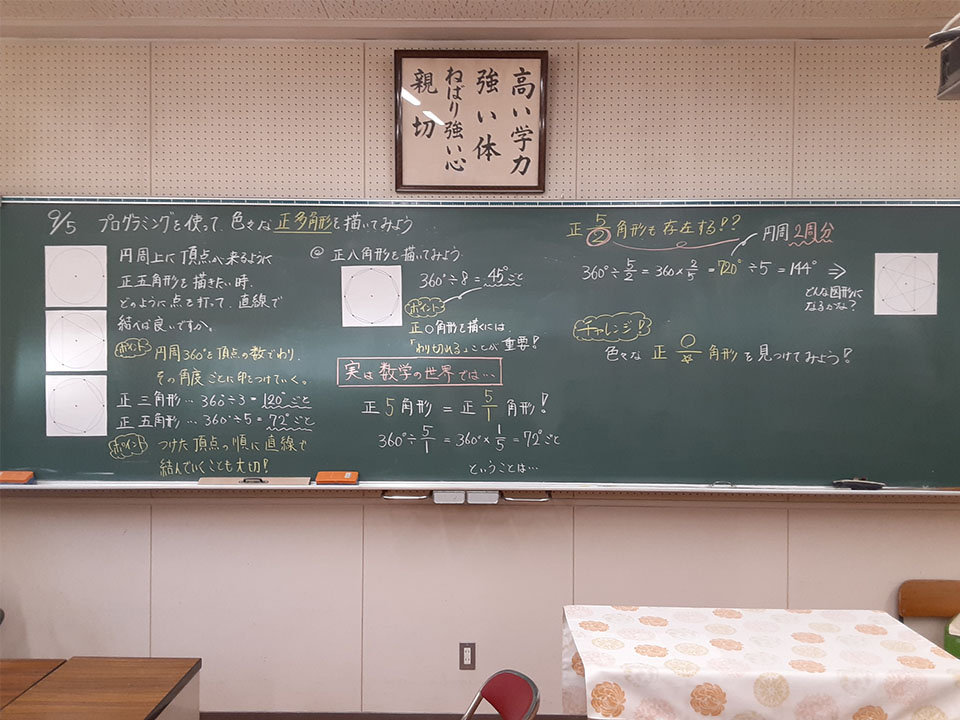 高い学力
強い体
ねばり強い心
親切
9/5 プログラミングを使って、色々な正多角形を描いてみよう
円周上に頂点が来るように
正五角形を描きたい時、
どのように点を打って、直線で
結べば良いですか。
ポイント 円周360°を頂点の数でわり、
その角度ごとに印をつけていく。
正三角形…360÷3=120°ごと
正五角形…360°÷5=72°ごと
ポイント つけた頂点の順に直線で
結んでいくことも大切!
@正八角形を描いてみよう
360°÷8=45°ごと
ポイント
正〇角形を描くには、
「わり切れる」ことが重要!
実は数学の世界では…
正5角形=正5/1角形!
360°÷5/1=360°×1/5=72°ごと
ということは…
正5/2角形も存在する!?
円周2周分
360°÷5/2=360×2/5=720°÷5=144°⇒
どんな図形に
なるかな?
チャレンジ!
色々な正〇/☆角形を見つけてみよう!